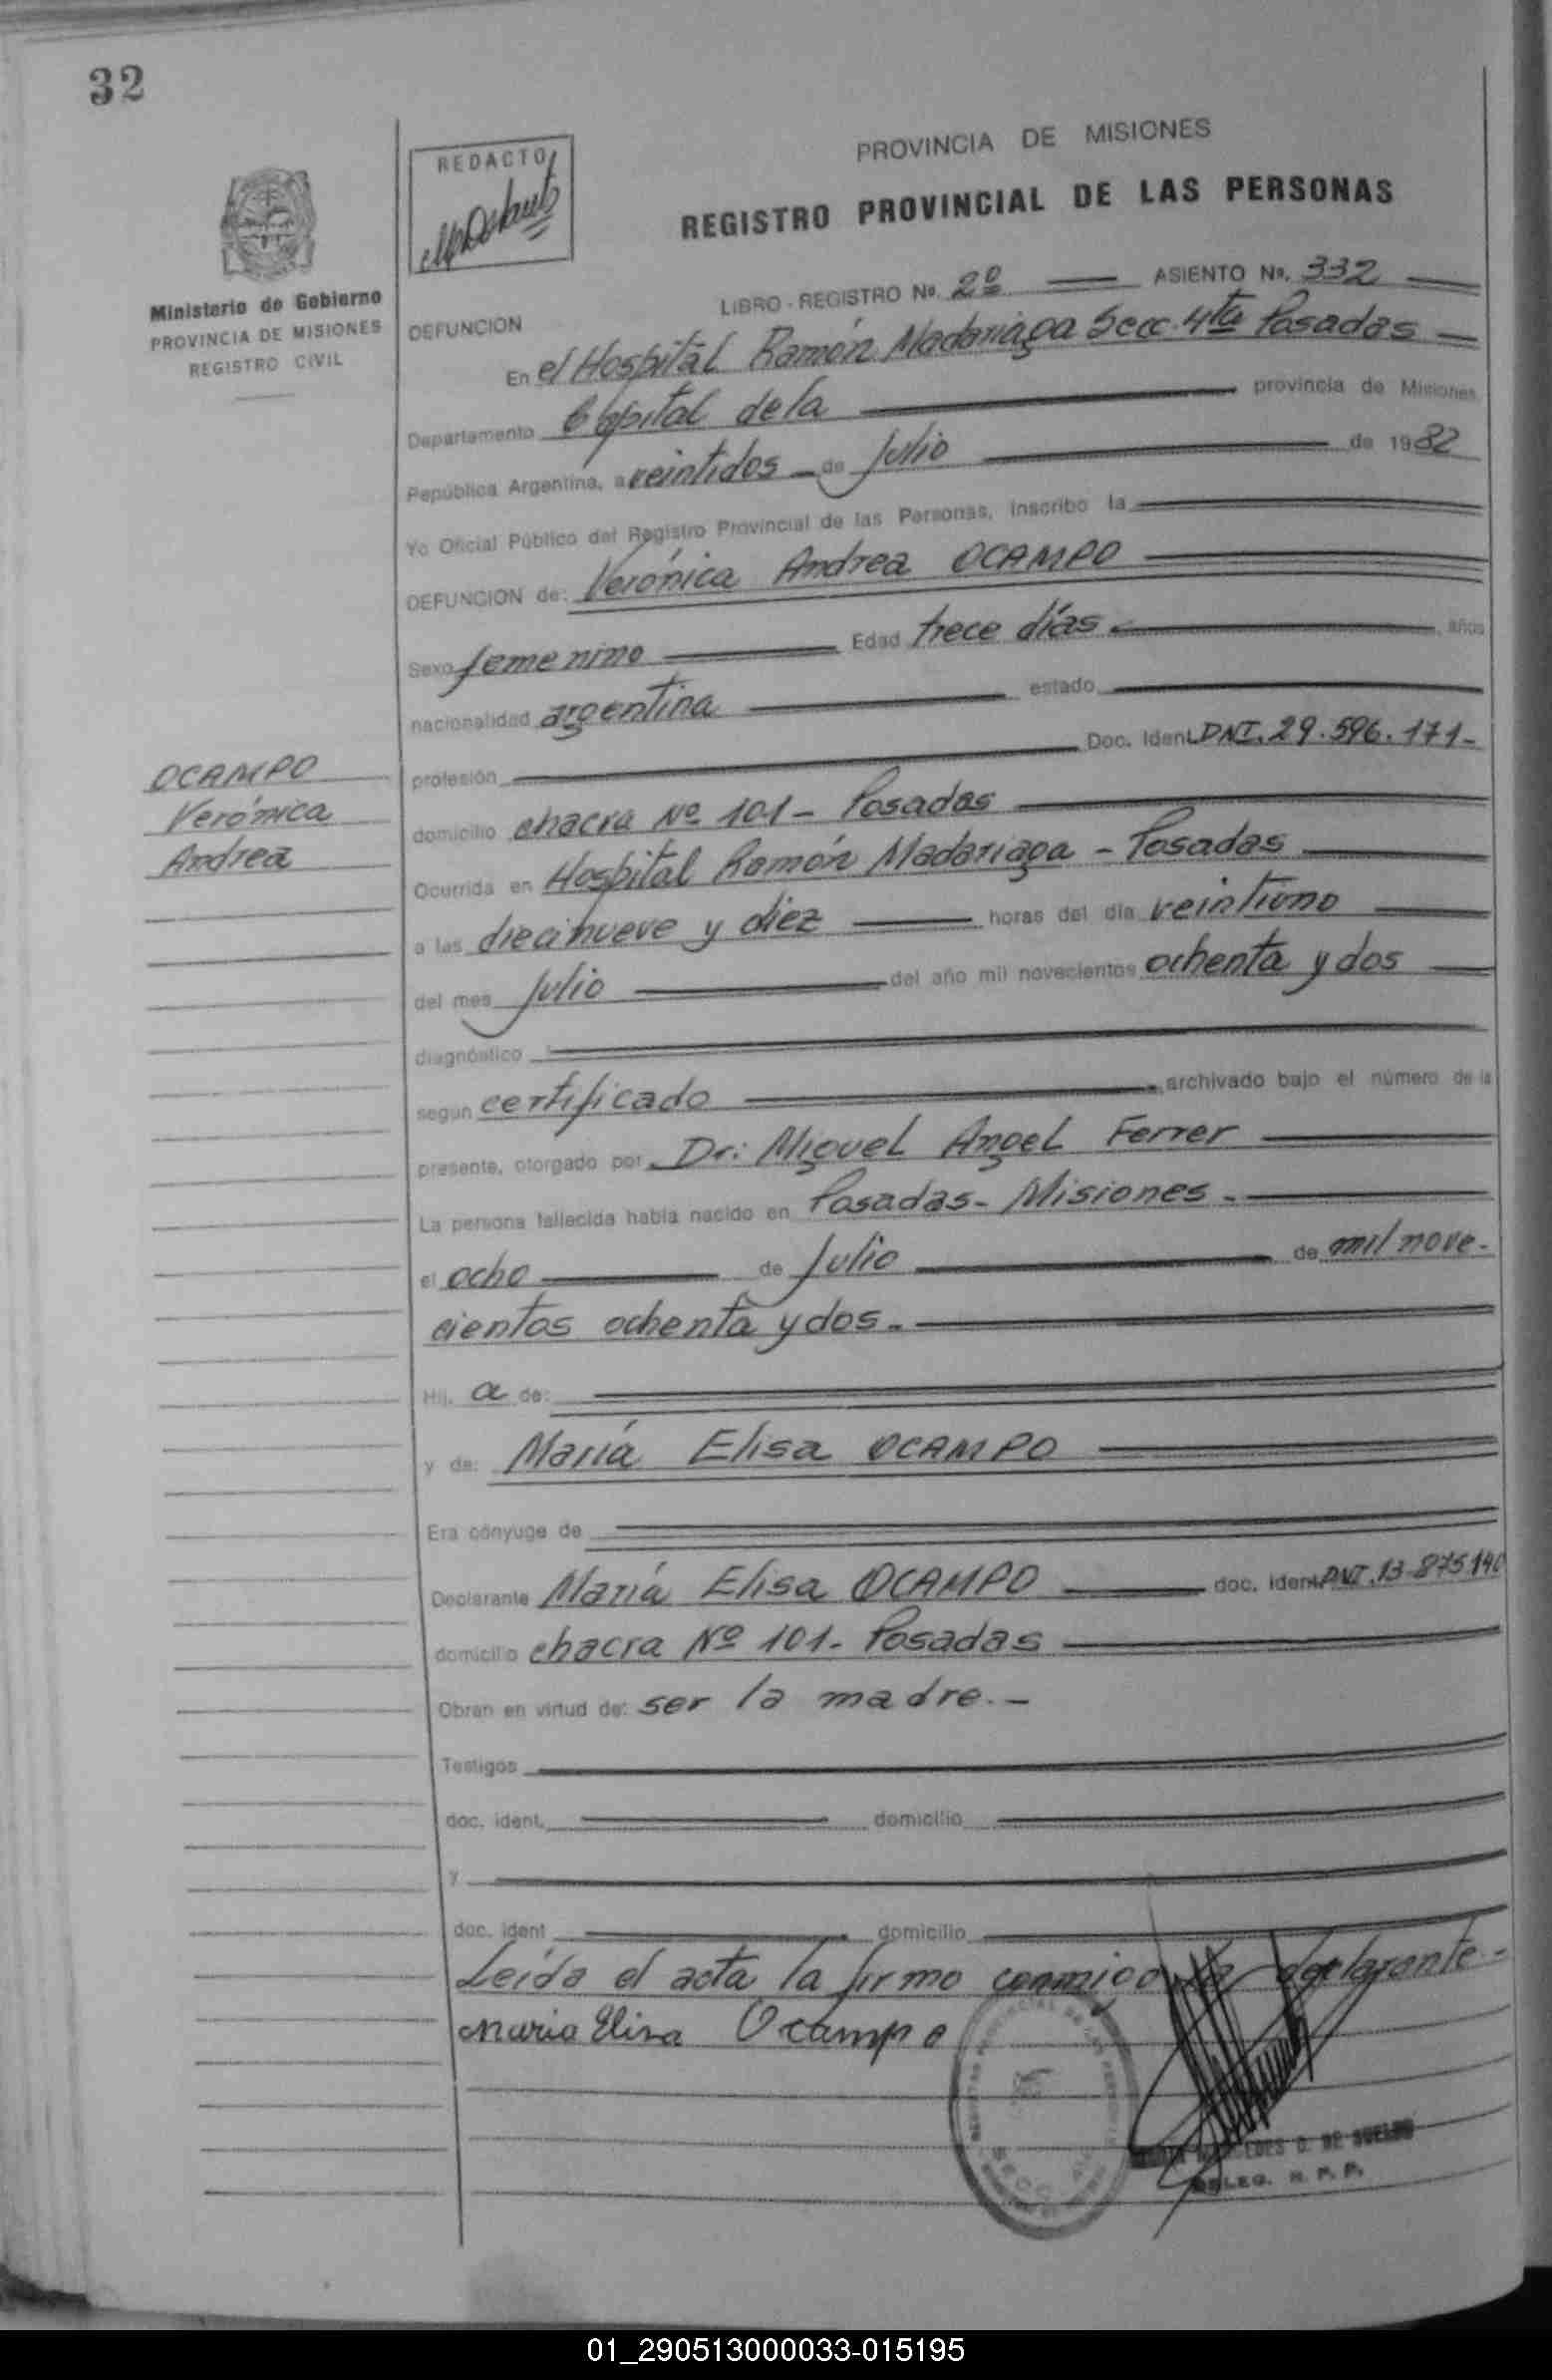 32
REDACTO
PROVINCIA DE MISIONES
REGISTRO PROVINCIAL DE LAS PERSONAS
Ministerio de Gobierno
PROVINCIA DE MISIONES
REGISTRO CIVIL
LIBRO - REGISTRO No. 2º ASIENTO No. 332
DEFUNCION
En el Hospital Ramón Madariaga Secc. 4ta Posadas
Departamento Capital de la provincia de Misiones
República Argentina, a veintidos de Julio de 1982
Yo Oficial Público del Registro Provincial de las Personas, inscribo la
DEFUNCION de: Verónica Andrea OCAMPO
Sexo femenino Edad trece días años
nacionalidad argentina estado
profesión Doc. Ident. DNI. 29.596.171-
OCAMPO
Verónica
Andrea
domicilio chacra Nº 101 - Posadas
Ocurrida en Hospital Ramón Madariaga - Posadas
a las diecinueve y diez horas del día veintiuno
del mes Julio del año mil novecientos ochenta y dos
diagnóstico
según certificado archivado bajo el número de la
presente, otorgado por Dr: Miguel Angel Ferrer
La persona fallecida había nacido en Posadas - Misiones -
el ocho de Julio de mil nove-
cientos ochenta y dos.
Hij. a de:
y de: María Elisa OCAMPO
Era cónyuge de
Declarante María Elisa OCAMPO doc. ident. DNI. 13.875.140
domicilio chacra Nº 101 - Posadas
Obran en virtud de: ser la madre.-
Testigos
doc. ident. domicilio
y
doc. ident domicilio
Leída el acta la firmo conmigo la declarante.-
Maria Elisa Ocampo
DE SUELDO
DELEG. R. P. P.
01_290513000033-015195